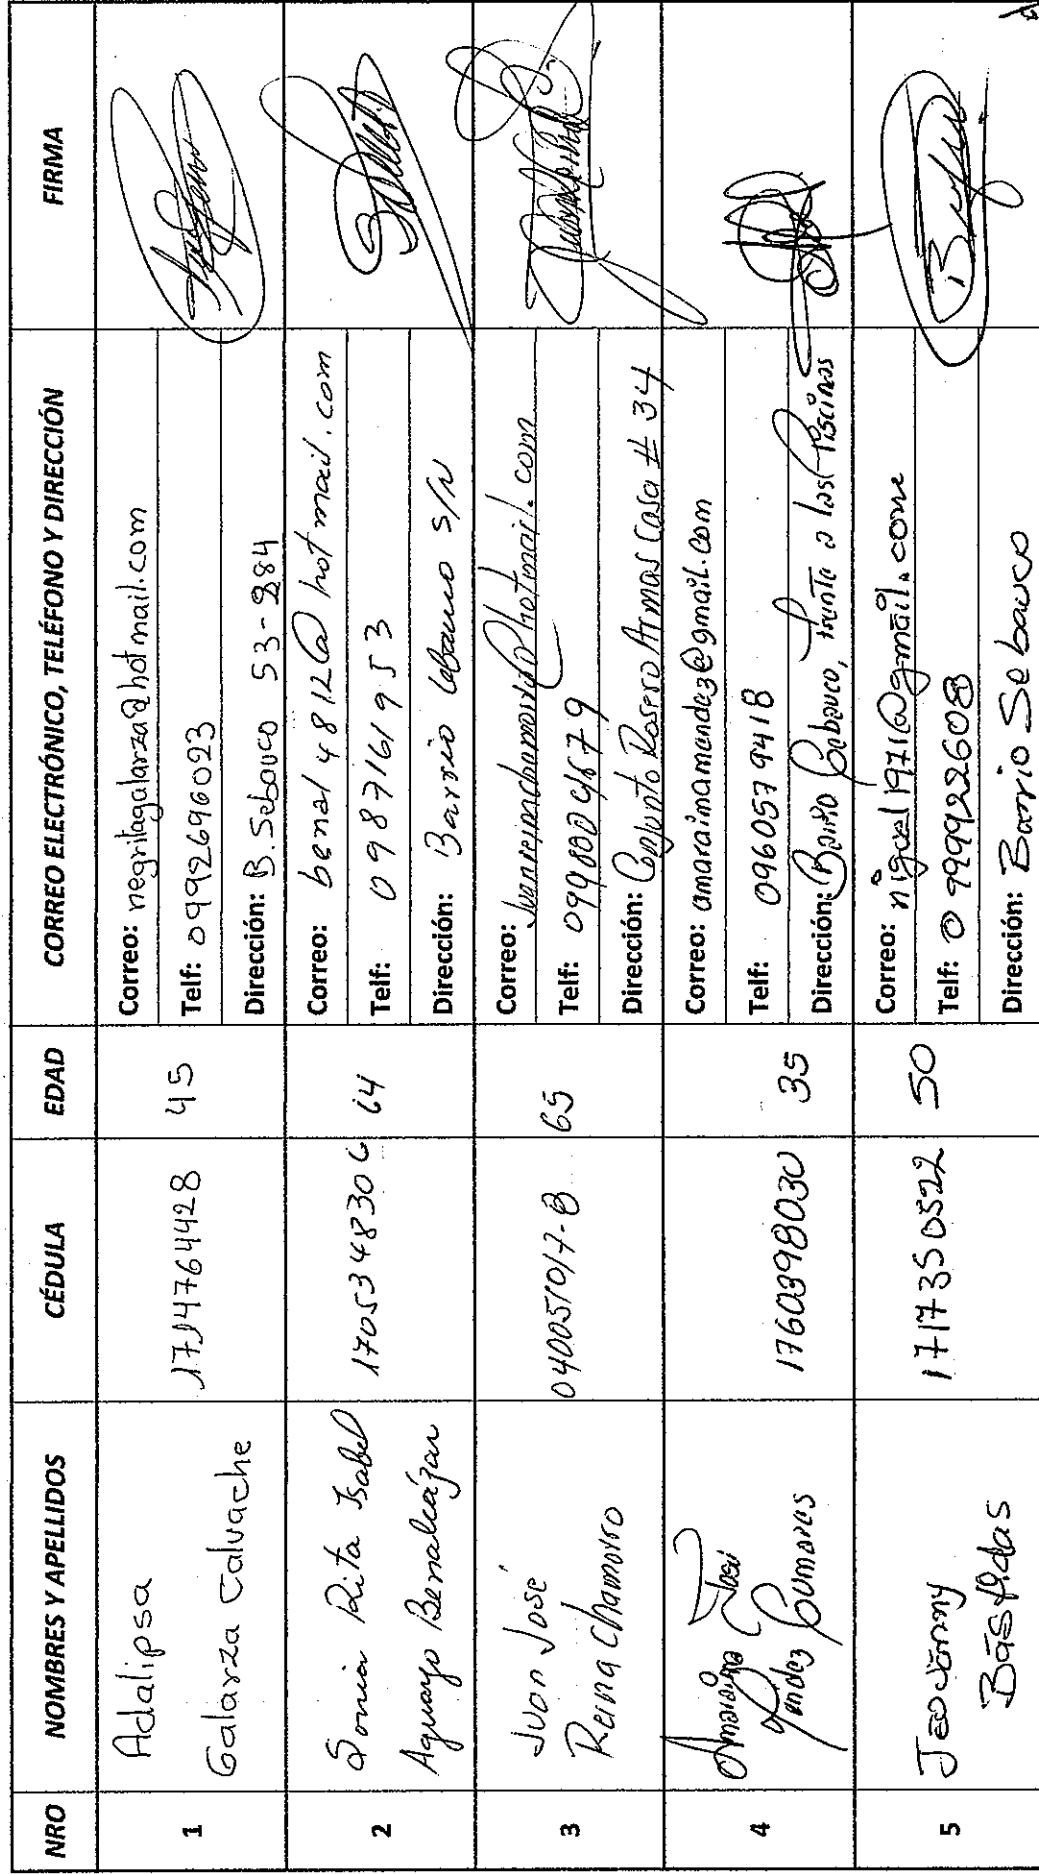 NRO NOMBRES Y APELLIDOS CÉDULA EDAD CORREO ELECTRÓNICO, TELÉFONO Y DIRECCIÓN FIRMA
1 Adalipsa
Galarza Calvache
1714764428 45
Correo: negritagalarza@hotmail.com
Telf: 0992696023
Dirección: B. Sebauco S3-284
2 Sonia Rita Isabel
Aguayo Benalcázar
170534830 64
Correo: benal4812@hotmail.com
Telf: 0987161953
Dirección: Barrio Cebauco s/n
3 Juan José
Reina Chamorro
040051017-8 65
Correo: @hotmail.com
Telf: 099800
Dirección: Conjunto Rosero Armas Casa # 34
4 José
1760398030 35
Correo: amaraimamendez@gmail.com
Telf: 0960579418
Dirección: Barrio Cebauco, frente a las Piscinas
5 Jenny
Bastidas
1717350522 50
Correo: @gmail.com
Telf: 0999922608
Dirección: Barrio Sebauco